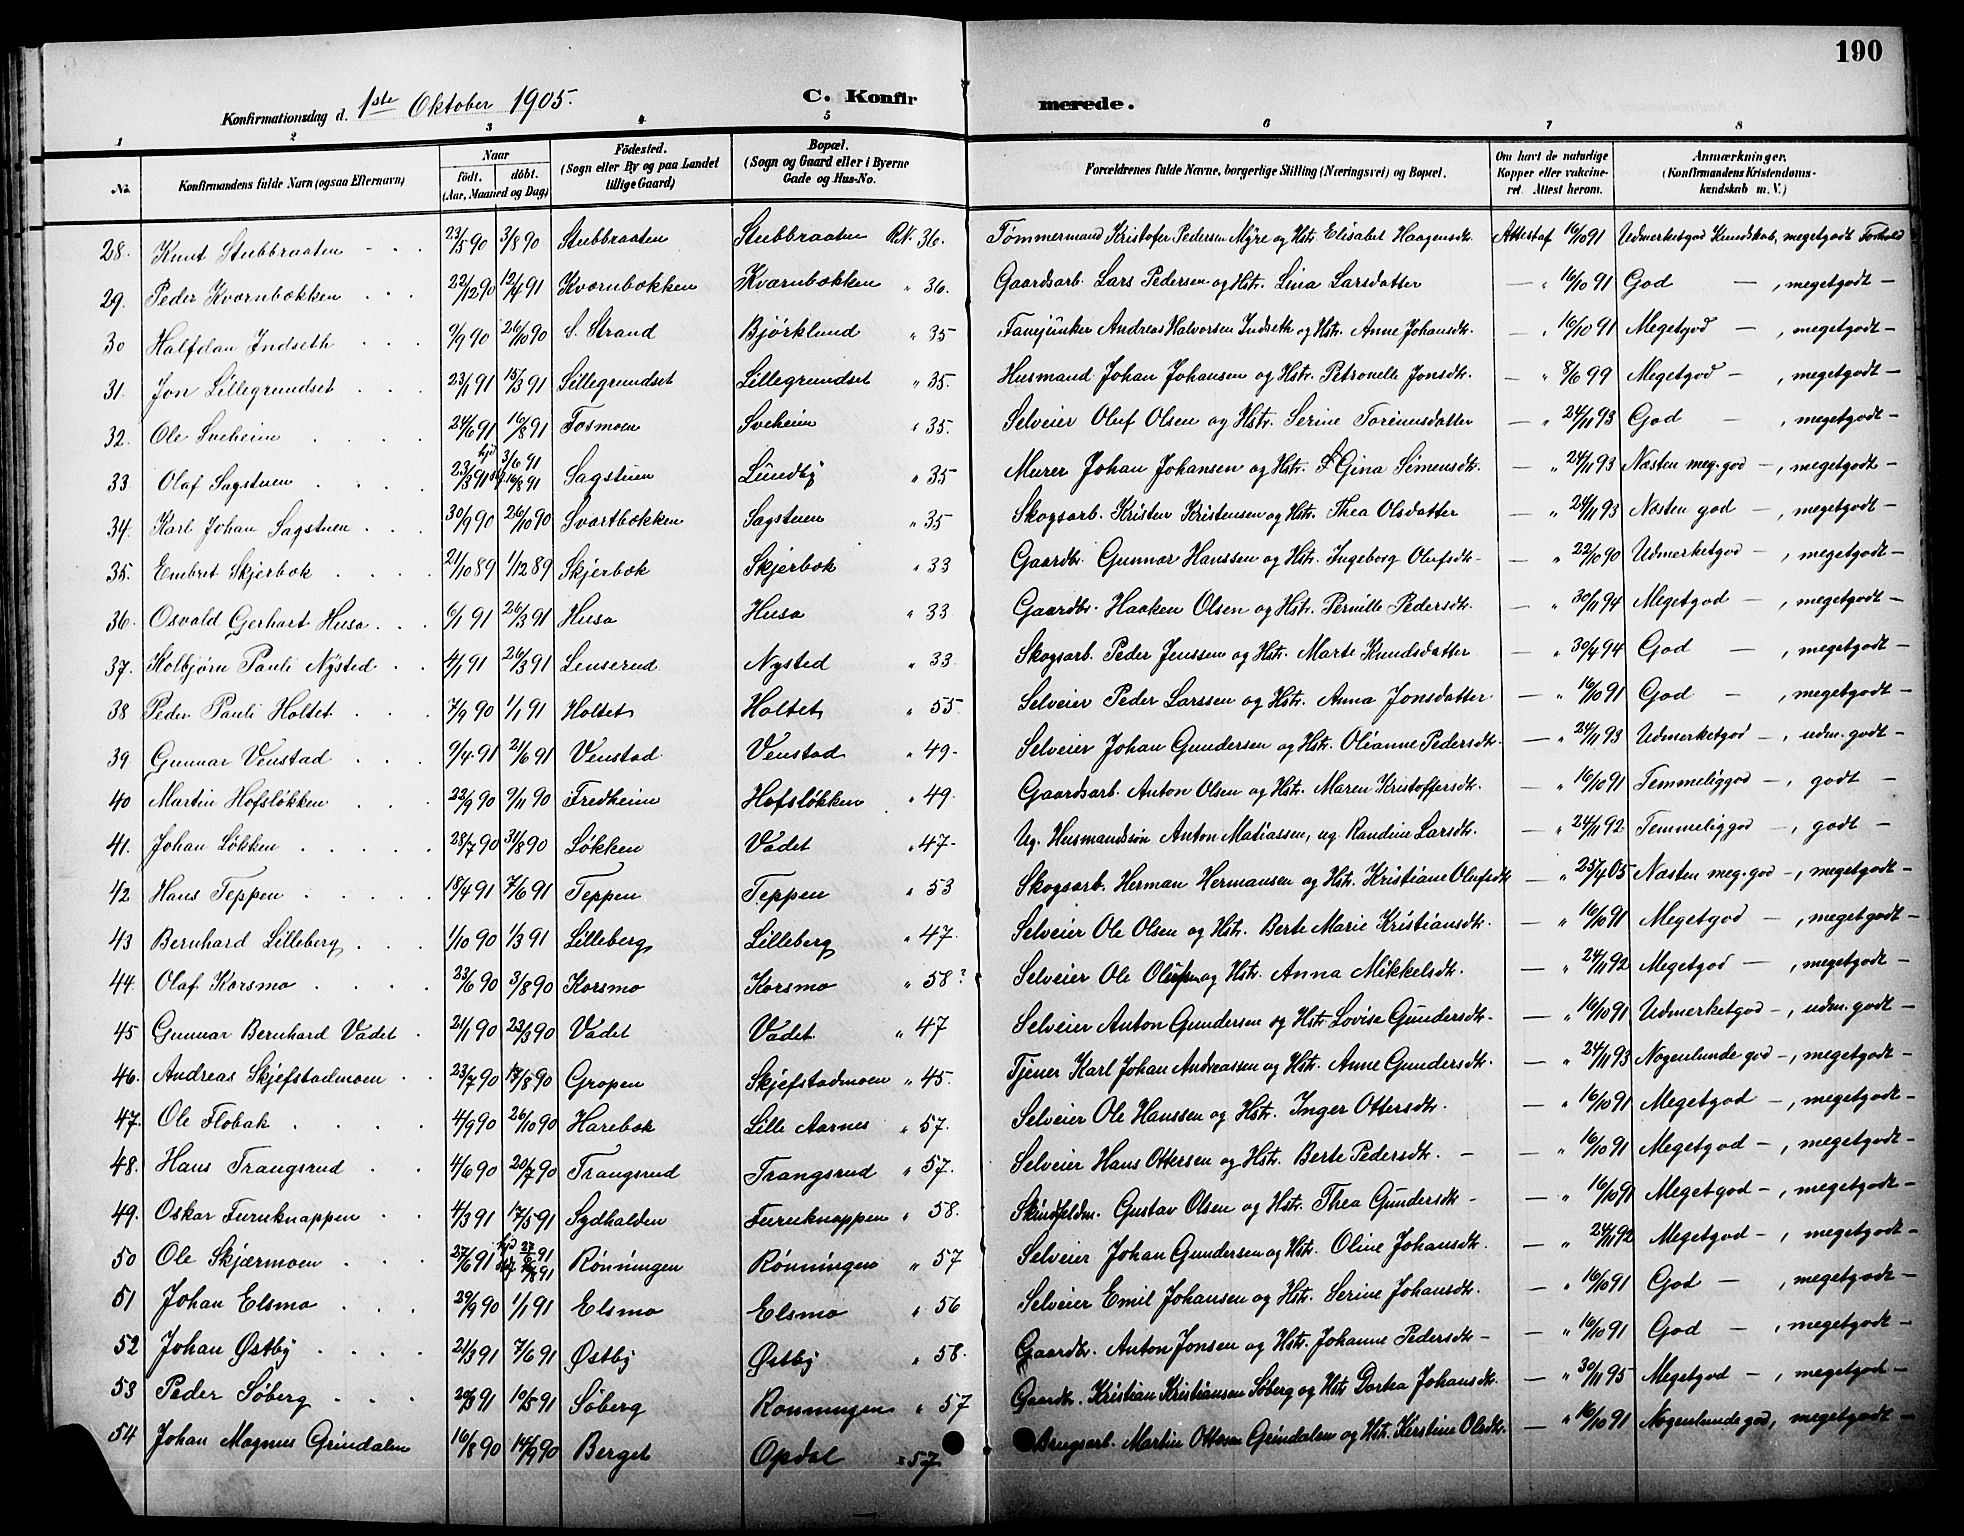 190
Konfirmationsdag d. 1ste Oktober 1905. C. Konfirmerede.
1 2 3 4 5 6 7 8
No. Konfirmandens fulde Navn (ogsaa Efternavn) Naar født. døbt. (Aar, Maaned og Dag) Fødested. (Sogn eller By og paa Landet tillige Gaard) Bopæl. (Sogn og Gaard eller i Byerne Gade og Hus-No. Forældrenes fulde Navne, borgerlige Stilling (Næringsvei) og Bopæl. Om havt de naturlige Kopper eller vakcineret. Attest herom. Anmærkninger. (Konfirmandens Kristendomskundskab m. V.)
28. Knut Stubbraaten 23/5 90 3/8 90 Stubbraaten Stubbraaten RN. 36. Tømmermand Kristofer Pedersen Myre og Hstr. Elisabet Haagensdtr. Attest af 16/10 91 Udmerketgod Kundskab, megetgodt Forhold
29. Peder Kværnbækken 22/12 90 12/4 91 Kværnbækken Kværnbækken " 36. Gaardsarb. Lars Pedersen og Hstr. Lina Larsdatter — " 16/10 91 God — , megetgodt —
30 Halfdan Indseth 9/9 90 26/10 90 S. Strand Bjørklund " 35 Fanejunker Andreas Halvorsen Indseth og Hstr. Anne Johansdtr. — " 16/10 91 Megetgod — , megetgodt —
31. Jon Lillegrundset 23/1 91 15/3 91 Lillegrundset Lillegrundset " 35. Husmand Johan Johansen og Hstr. Petronelle Jonsdtr. — " 8/6 99 Megetgod — , megetgodt —
32. Ole Sveheim 24/6 91 16/8 91 Fosmoen Sveheim " 35. Selveier Oluf Olsen og Hstr. Serine Torinusdatter — " 24/11 93 God — , megetgodt —
33 Olaf Sagstuen 23/3 91 hjd 3/6 91 16/8 91 Sagstuen Lundby " 35 Murer Johan Johansen og Hstr. Gina Simensdtr. — " 24/11 93 Næsten meg. god —, megetgodt —
34. Karl Johan Sagstuen 30/9 90 26/10 90 Svartbækken Sagstuen " 35 Skogsarb. Krister Kristensen og Hstr. Thea Olsdatter — " 24/11 93 Næsten god —, megetgodt —
35. Embret Skjerbæk 21/10 89 1/12 89 Skjerbæk Skjerbæk " 33 Gaardbr. Gunnar Hanssen og Hstr. Ingeborg Olufsdtr — " 22/10 90 Udmerketgod —, megetgodt —
36. Osvald Gerhart Husa 6/1 91 26/3 91 Husa Husa " 33. Gaardbr. Haaken Olsen og Hstr. Pernille Pedersdtr. — " 30/11 94 Megetgod —, megetgodt —
37. Kolbjørn Pauli Nysted 4/1 91 26/3 91 Lenserud Nysted " 33. Skogsarb. Peder Jenssen og Hstr. Marte Knudsdatter — " 30/4 94 God — , megetgodt —
38 Peder Pauli Holtet 7/9 90 1/1 91 Holtet Holtet " 55. Selveier Peder Larssen og Hstr. Anna Jonsdatter — " 16/10 91 God — , megetgodt —
39 Gunnar Venstad 9/4 91 21/6 91 Venstad Venstad " 49. Selveier Johan Gundersen og Hstr. Olianne Pedersdtr. — " 24/11 93 Udmerketgod —, udm. godt —
40 Martin Hofsløkken 23/9 90 9/11 90 Fredheim Hofsløkken " 49. Gaardsarb. Anton Olsen og Hstr. Maren Kristoffersdtr. " 16/10 91 Temmeliggod —, godt —
41. Johan Løkken 28/7 90 31/8 90 Løkken Vadet " 47. Ug. Husmandssøn Anton Matiassen, ug. Randine Larsdtr. — " 24/11 92 Temmeliggod —, godt —
42 Hans Teppen 18/4 91 7/6 91 Teppen Teppen " 53 Skogsarb. Herman Hermansen og Hstr. Kristiane Olufsdtr — " 25/4 05 Næsten meg. god —, megetgodt —
43 Bernhard Lilleberg 1/10 90 1/3 91 Lilleberg Lilleberg " 47. Selveier Ole Olsen og Hstr. Berte Marie Kristiansdtr. — " 16/10 91 Megetgod — , megetgodt —
44. Olaf Korsmo 23/6 90 3/8 90 Korsmo Korsmo " 58? Selveier Ole Olufsen og Hstr. Anna Mikkelsdtr. — " 24/11 92 Megetgod — , megetgodt —
45 Gunnar Bernhard Vadet 21/1 90 23/3 90 Vadet Vadet " 47 Selveier Anton Gundersen og Hstr Lovise Gundersdtr. — " 16/10 91 Udmerketgod —, udm. godt —
46. Andreas Skjefstadmoen 23/7 90 17/8 90 Gropen Skjefstadmoen " 45. Tjener Karl Johan Andreassen og Hstr. Anne Gundersdtr. — " 24/11 93 Nogenlunde god —, megetgodt —
47. Ole Flobak 4/9 90 26/10 90 Harebæk Lille Aarnes " 57. Selveier Ole Hanssen og Hstr. Inger Ottersdtr. — " 16/10 91 Megetgod —, megetgodt —
48. Hans Trangsrud 4/6 90 20/7 90 Trangsrud Trangsrud " 57. Selveier Hans Ottersen og Hstr. Berte Pedersdtr. — " 16/10 91 Megetgod —, megetgodt —
49. Oskar Furuknappen 4/3 91 17/5 91 Sydhalden Furuknappen " 58. Skindfeldm. Gustav Olsen og Hstr. Thea Gundersdtr — " 16/10 91 Megetgod —, megetgodt —
50 Ole Skjærmoen 27/6 91 hjd 27/6 91 /8 91 Rønningen Rønningen " 57 Selveier Johan Gundersen og Hstr. Oline Johansdtr. — " 24/11 92 Megetgod —, megetgodt —
51 Johan Elsmo 29/9 90 1/1 91 Elsmo Elsmo " 56 Selveier Emil Johansen og Hstr. Serine Johansdtr. — " 16/10 91 God — , megetgodt —
52 Johan Østby 21/3 91 7/6 91 Østby Østby " 58. Gaardbr. Anton Jonsen og Hstr. Johanne Pedersdtr — " 16/10 91 God — , megetgodt —
53 Peder Søberg 20/3 91 10/5 91 Søberg Rønningen " 57 Gaardbr. Kristian Kristiansen Søberg og Hstr Dorthea Johansdtr. — " 30/11 95 Megetgod —, megetgod —
54 Johan Magnus Grindalen 16/8 90 14/9 90 Berget Opdal " 57 Brugsarb. Martin Ottesen Grindalen og Hstr. Kerstine Olsdtr. — " 16/10 91 Nogenlunde god, megetgodt —